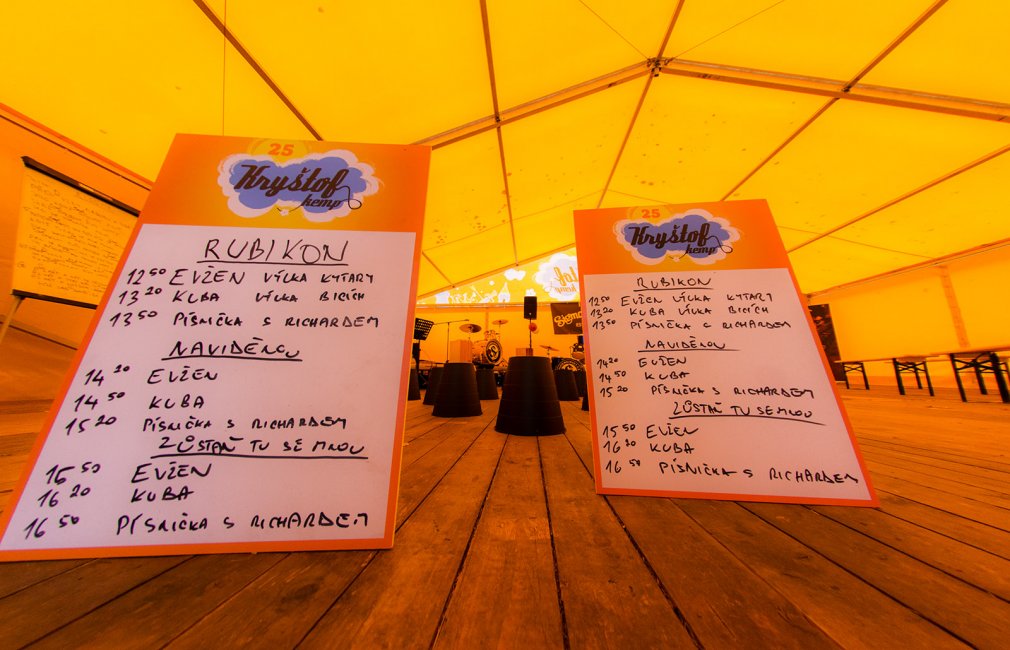 25
Kryštof
kemp
RUBIKON
12 50 EVŽEN VÝUKA KYTARY
13 20 KUBA VÝUKA BICÍCH
13 50 PÍSNIČKA S RICHARDEM
NAVIDĚNOU
14 20 EVŽEN
14 50 KUBA
15 20 PÍSNIČKA S RICHARDEM
ZŮSTAŇ TU SE MNOU
15 50 EVŽEN
16 20 KUBA
16 50 PÍSNIČKA S RICHARDEM
25
Kryštof
kemp
RUBIKON
12 50 EVŽEN VÝUKA KYTARY
13 20 KUBA VÝUKA BICÍCH
13 50 PÍSNIČKA S RICHARDEM
NAVIDĚNOU
14 20 EVŽEN
14 50 KUBA
15 20 PÍSNIČKA S RICHARDEM
ZŮSTAŇ TU SE MNOU
15 50 EVŽEN
16 20 KUBA
16 50 PÍSNIČKA S RICHARDEM